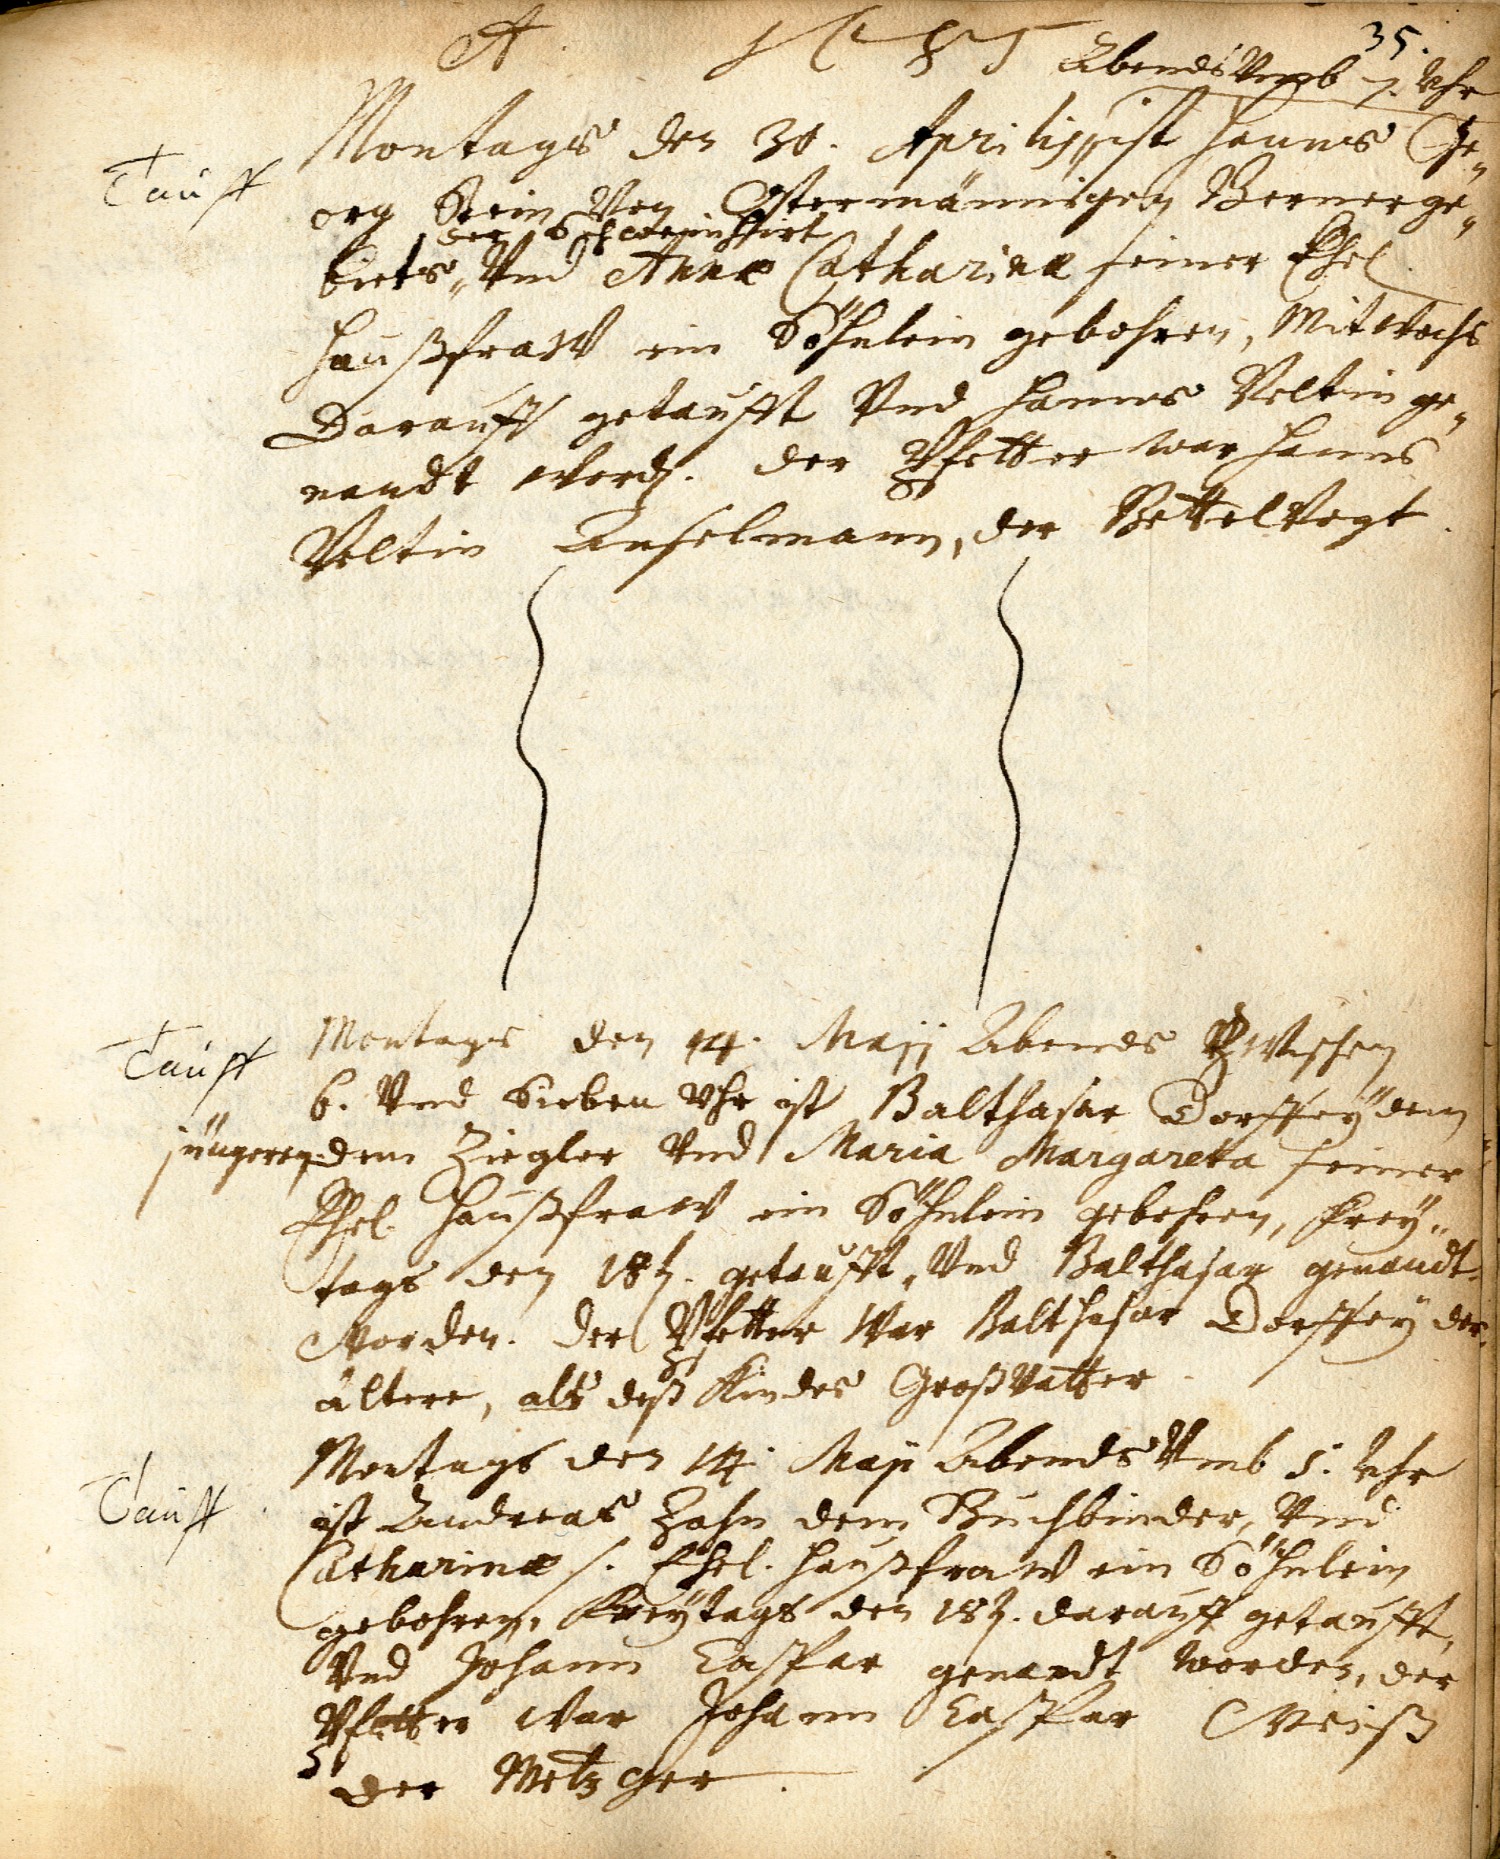 35.
A 1685 Abends Vmb 7. Vhr
Tauff
Montags den 30. Aprilis, ist Hanns Ge„
org Stein Von Ostermännigen Bernerge„
der Schweinhirt
biets„ Vnd Annæ Catharinæ seiner Ehel.
Haußfraw ein Söhnlein gebohren, Mitwochs
Darauff getaufft Vnd Hanns Veltin ge„
nandt word. der Pfetter war Hanns
Veltin Anselmann, der BettelVogt.
Tauff
Montags den 14. Maji Abends Zwischen
6. Vnd Sieben Vhr ist Balthasar Dorffeÿ dem
jüngeren dem Ziegler Vnd Maria Margareta seiner
Ehel. Haußfraw ein Söhnlein gebohren, Freÿ„
tags den 18t. getaufft, Vnd Balthasar genandt
worden. Der Pfetter War Balthasar Dorffeÿ der
ältere, als deß Kindes GroßVatter.
Tauff
Montags den 14. Maji Abends Vmb 5. Vhr
ist Andreas Zahn dem Buchbinder, Vnd
Catharinæ s. Ehel. Haußfraw ein Söhnlein
gebohren, Freÿtags den 18t. darauff getaufft,
Vnd Johann Caspar genandt worden, der
Pfetter war Johann Caspar Weiß
der Metzger.